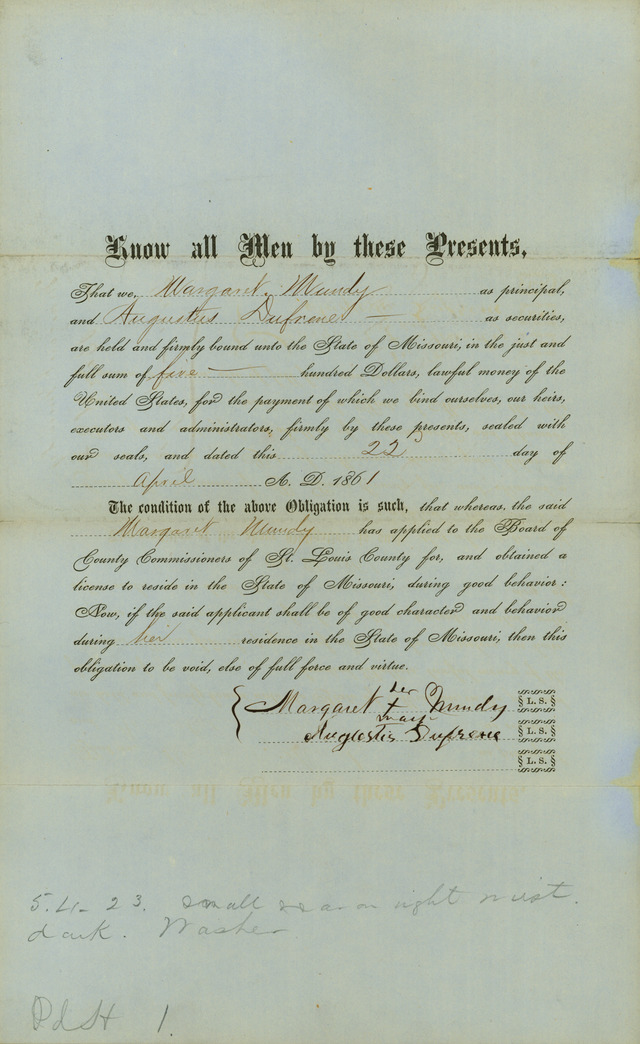 Know all Men by these Presents,
That we, Margaret Mundy as principal,
and Augustus Dufrene — as securities,
are held and firmly bound unto the State of Missouri, in the just and
full sum of five — hundred Dollars, lawful money of the
United States, for the payment of which we bind ourselves, our heirs,
executors and administrators, firmly by these presents, sealed with
our seals, and dated this 22 day of
April A. D. 1861
The condition of the above Obligation is such, that whereas, the said
Margaret Mundy has applied to the Board of
County Commissioners of St. Louis County for, and obtained a
license to reside in the State of Missouri, during good behavior:
Now, if the said applicant shall be of good character and behavior
during her residence in the State of Missouri, then this
obligation to be void, else of full force and virtue.
her
Margaret + Mundy § L. S. §
mark
Augustus Dufrene § L. S. §
§ L. S. §
5.4- 23. small scar on right wrist.
dark. Washer.
Pd SH 1